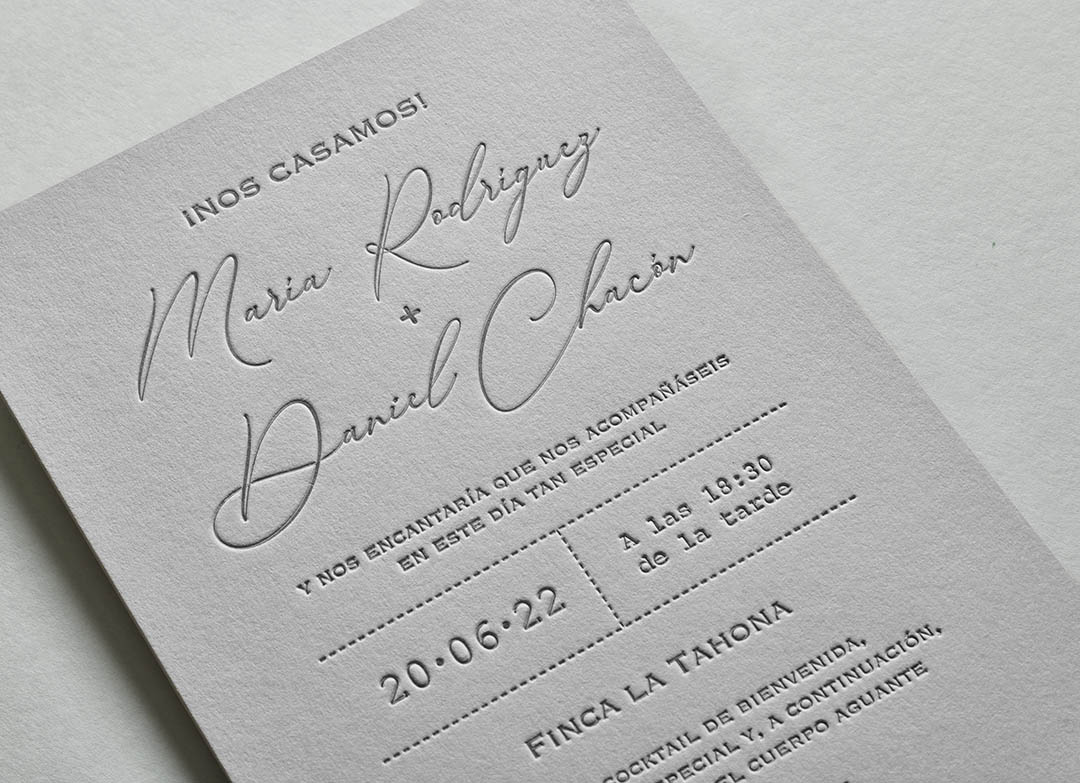 ¡NOS CASAMOS!
María Rodriguez
+
Daniel Chacón
Y NOS ENCANTARÍA QUE NOS ACOMPAÑÁSEIS
EN ESTE DÍA TAN ESPECIAL
20·06·22
A las 18:30
de la tarde
FINCA LA TAHONA
COCKTAIL DE BIENVENIDA,
ESPECIAL Y, A CONTINUACIÓN,
EL CUERPO AGUANTE